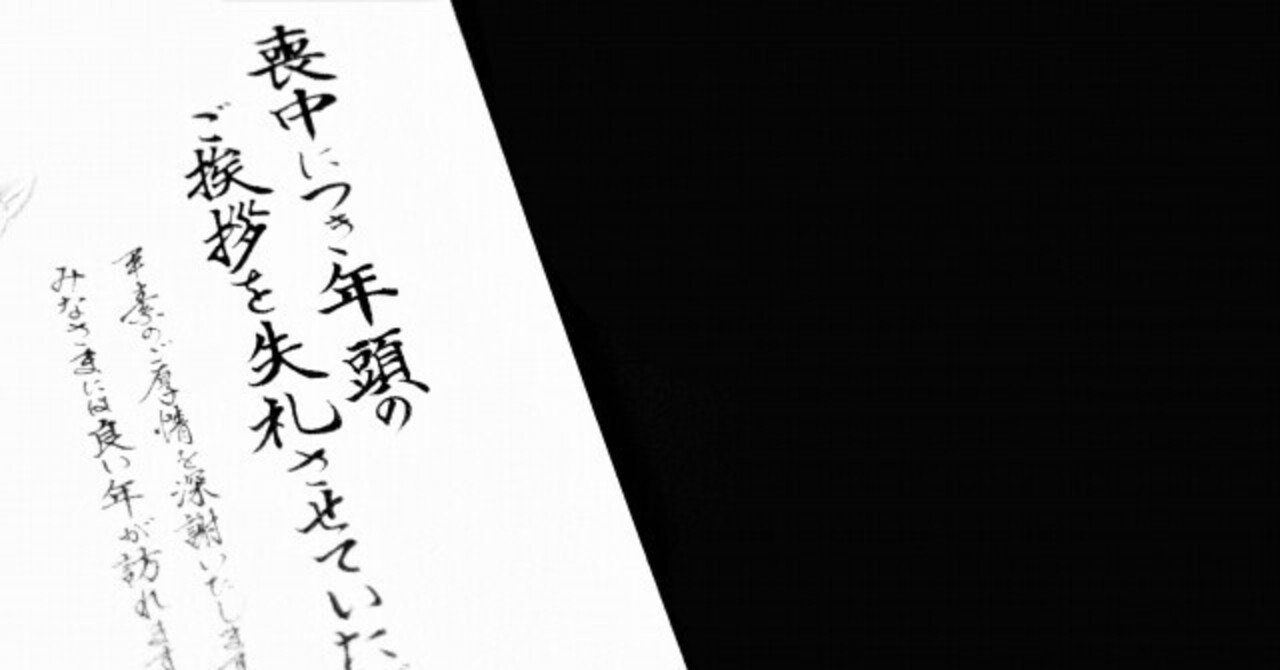 喪中につき年頭の
ご挨拶を失礼させていただ
平素のご厚情を深謝いたします
みなさまには良い年が訪れます